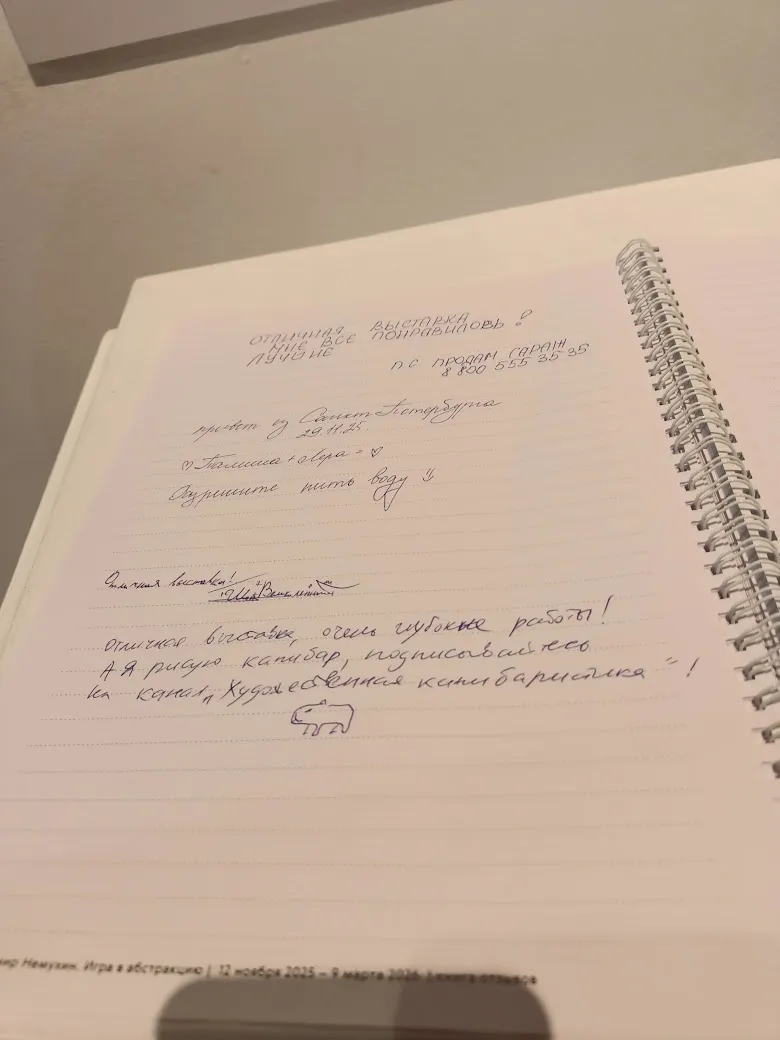 ОТЛИЧНАЯ ВЫСТАВКА
МНЕ ВСЕ ПОНРАВИЛОСЬ!
ЛУЧШИЕ
ПС ПРОДАМ ГАРАЖ
8 800 555 35 35
привет из Санкт-Петербурга
29.11.25.
♡ Полина + Лера = ♡
пить воду
Отличная выставка!
Отличная выставка, очень глубокие работы!
А Я рисую капибар, подписывайтесь
на канал „Художественная капибаристика"!
мир Немухин. Игра в абстракцию | 12 ноября 2025 – 9 марта 2026 | книга отзывов